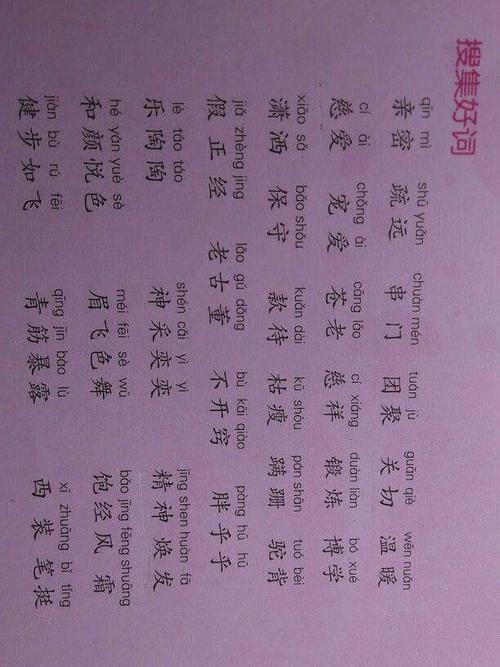 搜集好词
qīn mì shū yuǎn chuàn mén tuán jù guān qiè wēn nuǎn
亲密 疏远 串门 团聚 关切 温暖
cí ài chǒng ài cāng lǎo cí xiáng duàn liàn bó xué
慈爱 宠爱 苍老 慈祥 锻炼 博学
xiāo sǎ bǎo shǒu kuǎn dài kū shòu pán shān tuó bèi
潇洒 保守 款待 枯瘦 蹒跚 驼背
jiǎ zhèng jing lǎo gǔ dǒng bù kāi qiào pàng hū hū
假正经 老古董 不开窍 胖乎乎
lè táo táo shén cǎi yì yì jīng shen huàn fā
乐陶陶 神采奕奕 精神焕发
hé yán yuè sè méi fēi sè wǔ bǎo jīng fēng shuāng
和颜悦色 眉飞色舞 饱经风霜
jiàn bù rú fēi qīng jīn bào lù xī zhuāng bǐ tǐng
健步如飞 青筋暴露 西装笔挺